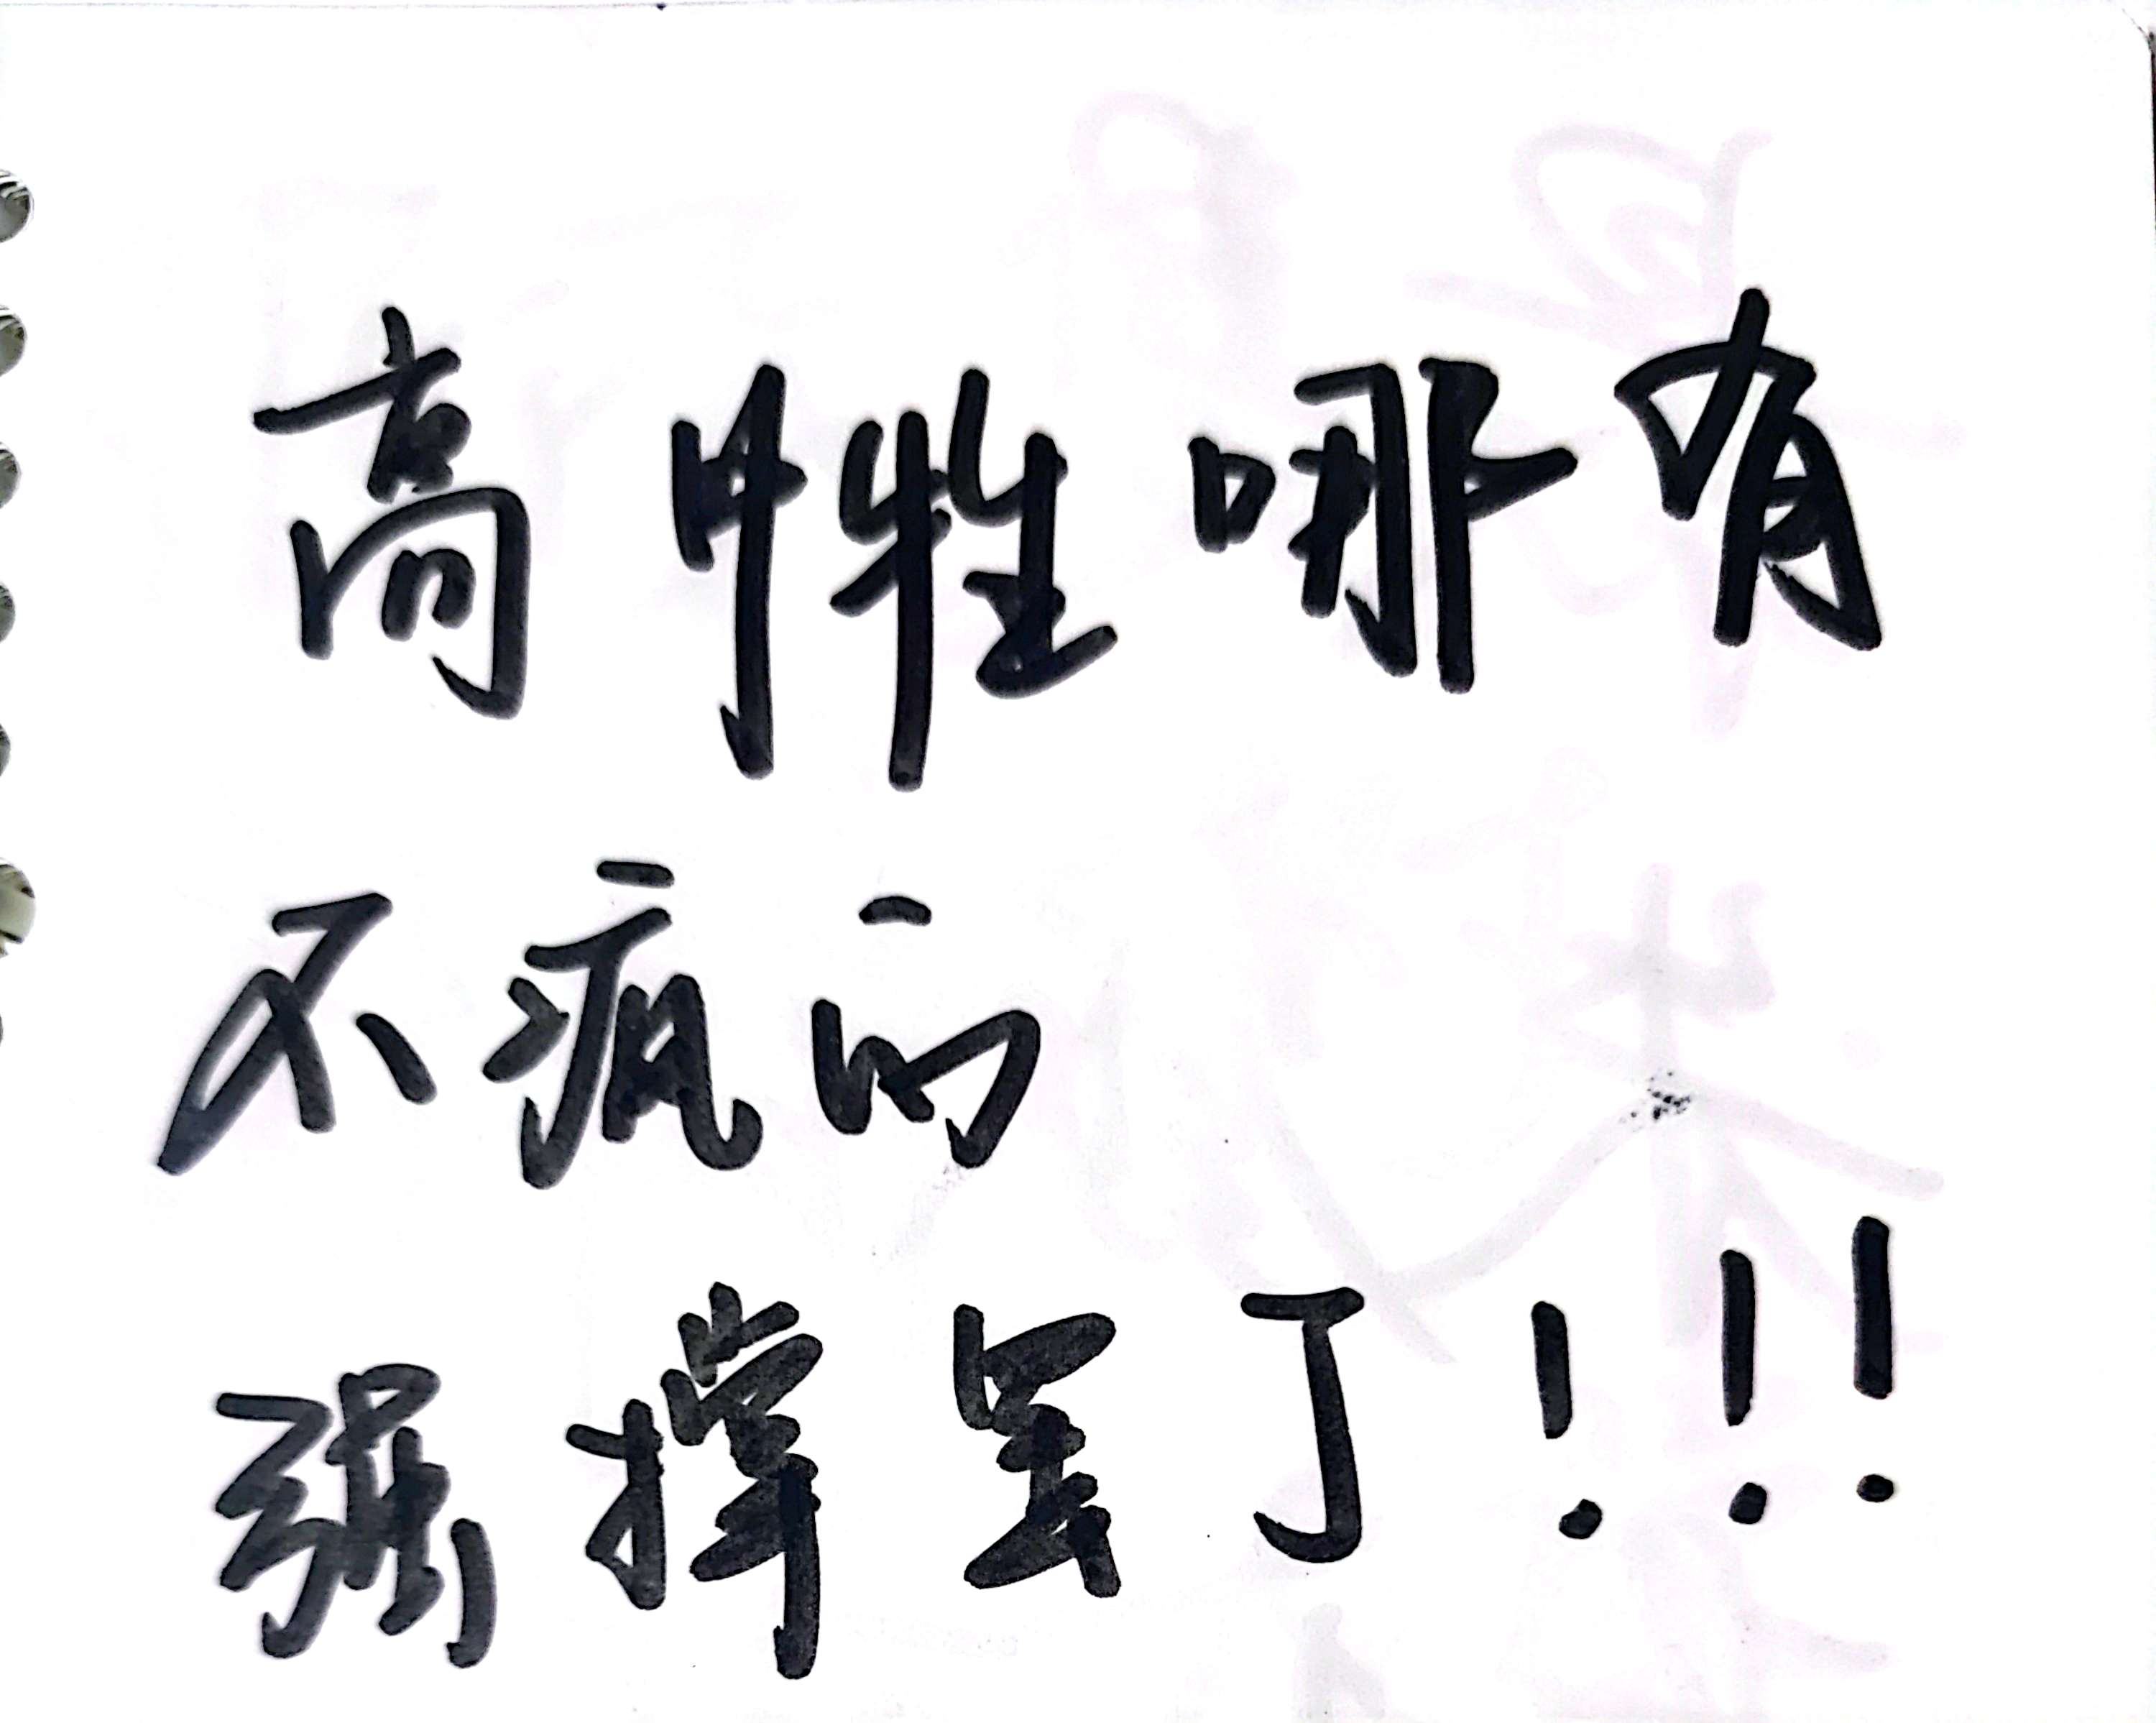 高中牲哪有
不疯的
强撑罢了!!!